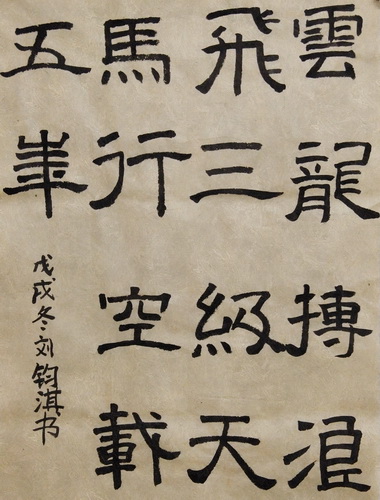 雲龍搏浪
飛三級天
馬行空載
五峯
戊戌冬刘钧淇书